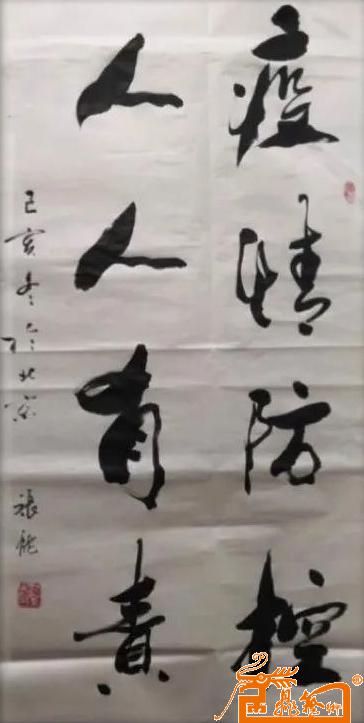 疫情防控
人人有责
己亥冬於北京 張能